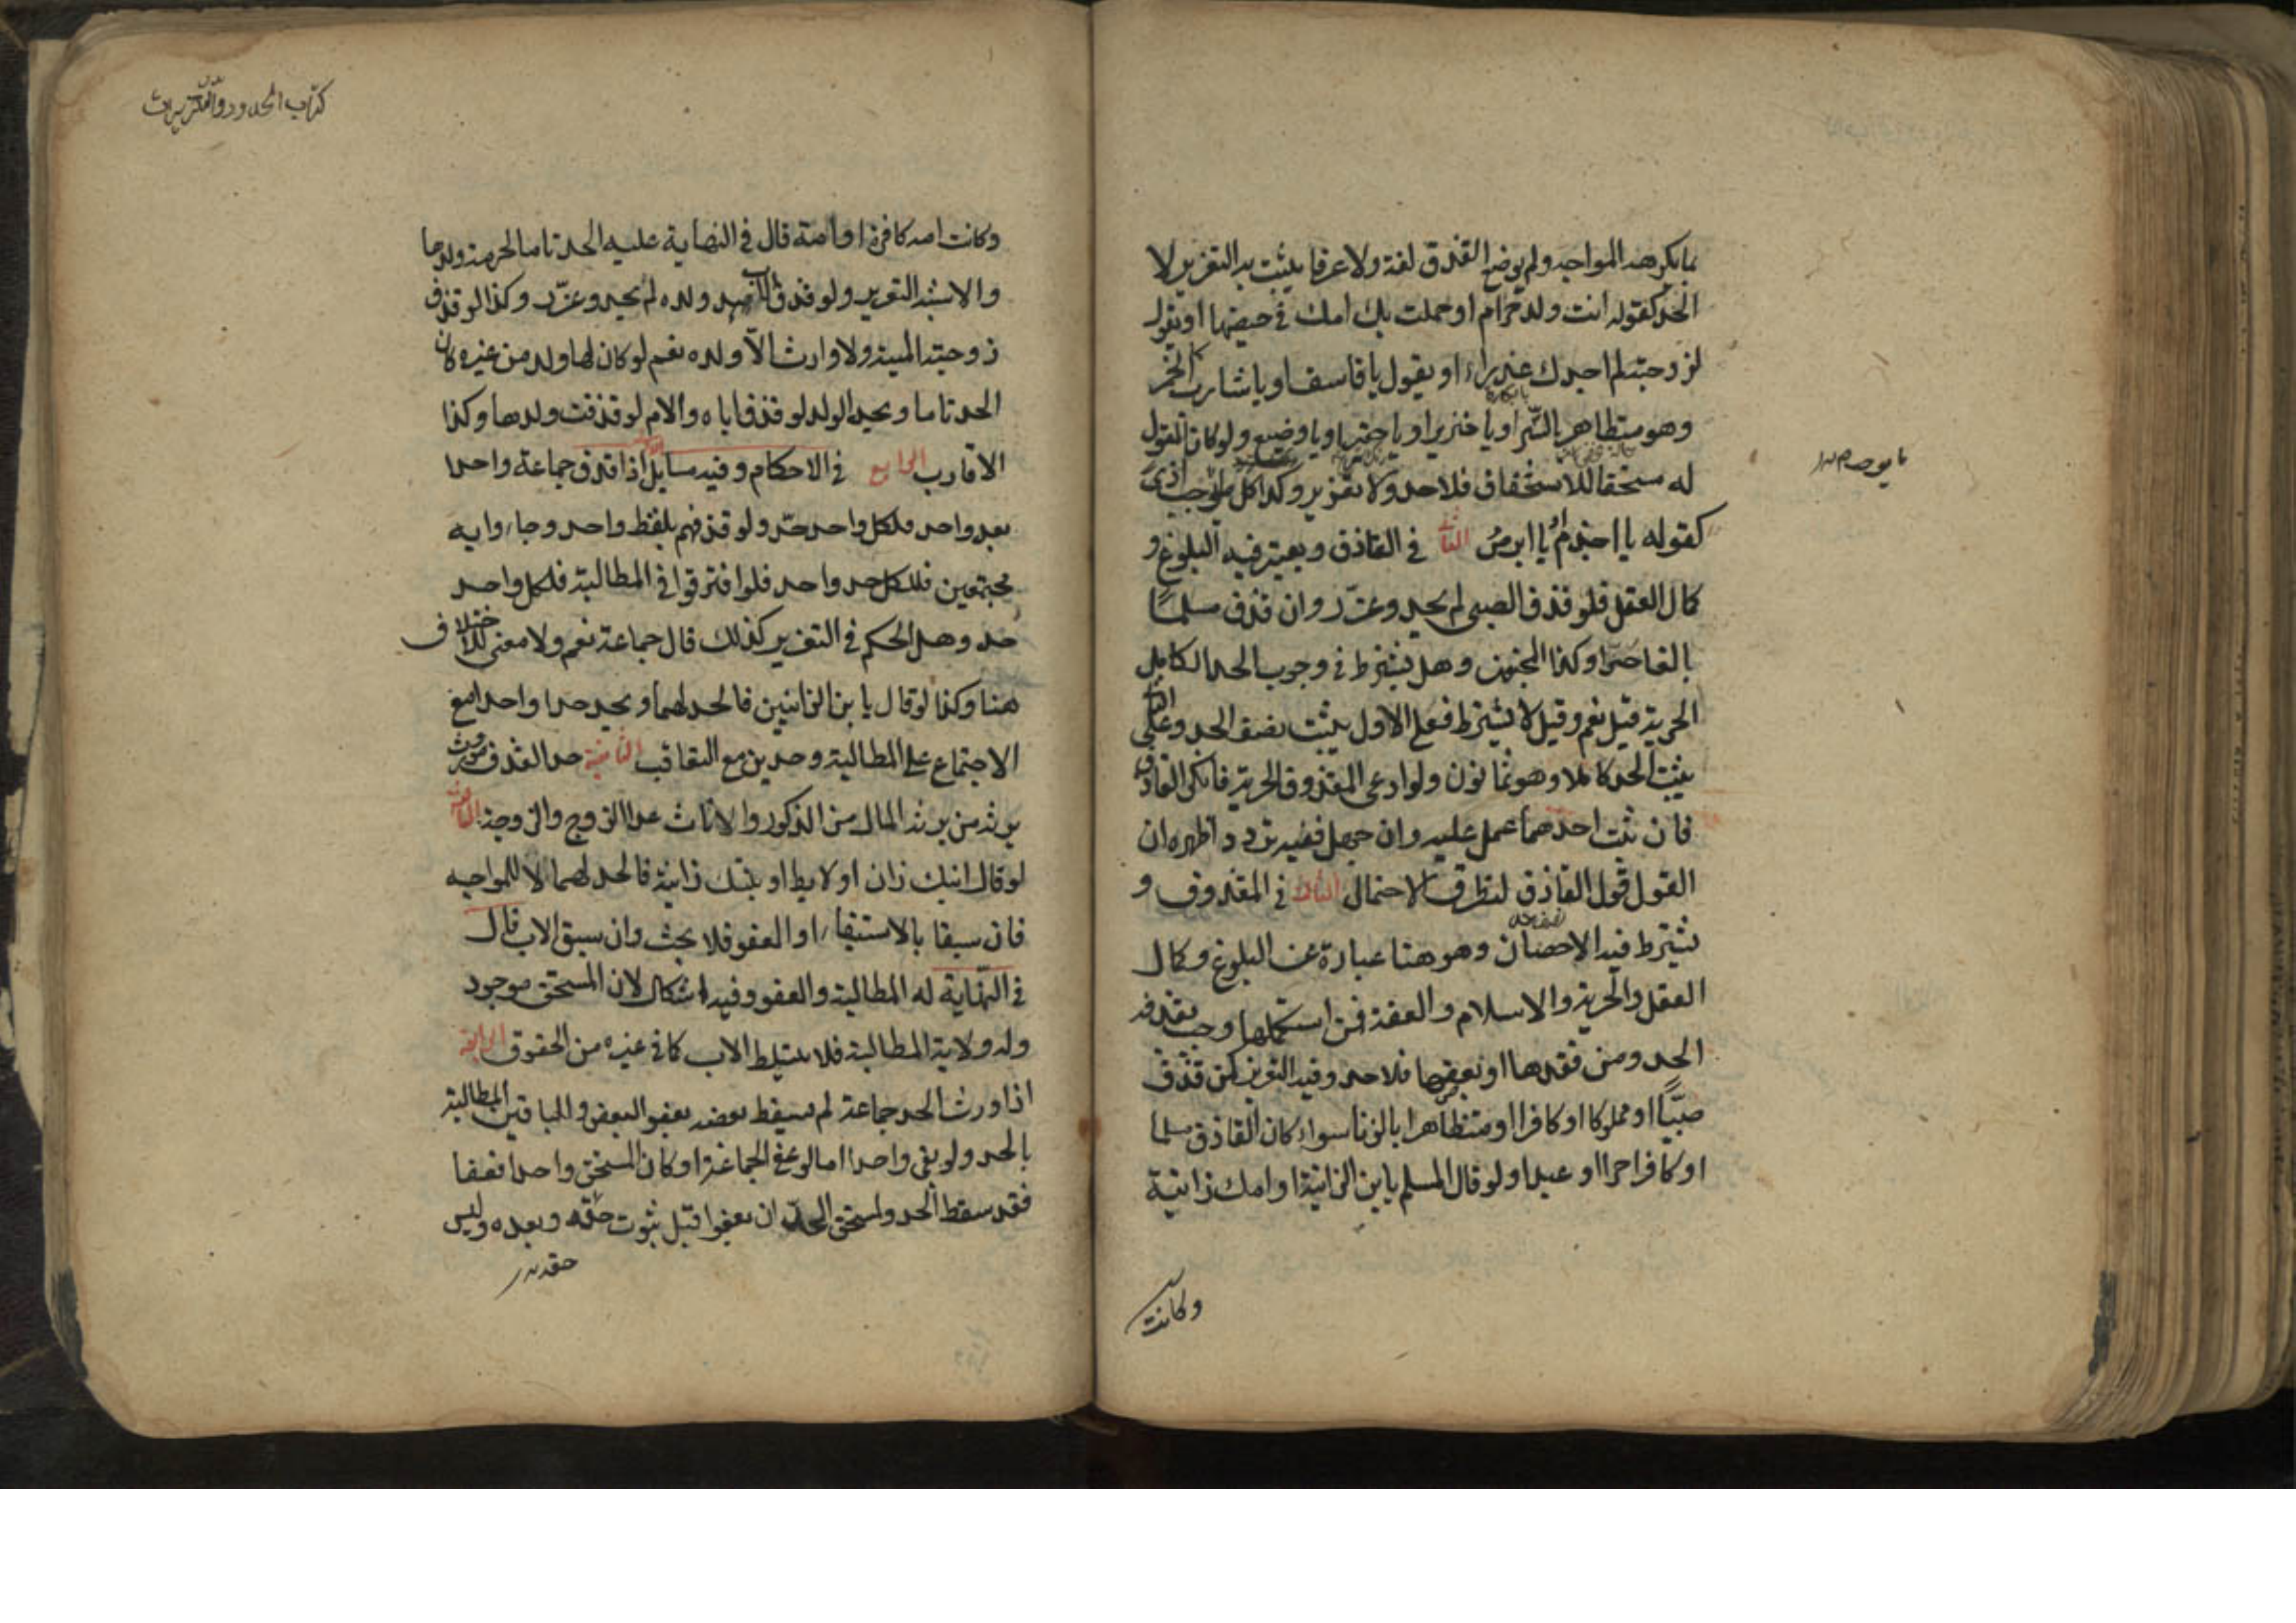 بما يكرهه المواجه ولم يوضع للقذف لغة ولا عرفا يثبت به التعزير لا
الحد كقوله انت ولد حرام او حملت بك امك في حيضها او يقول
لزوجته لم اجدك عذراء او يقول يا فاسق او يا شارب الخمر
وهو متظاهر بالستر او يا خنزير او يا حقير او يا وضيع ولو كان المقول
له مستحقا للاستخفاف فلا حد ولا تعزير وكذا كل ما يوجب اذى
كقوله يا اجذم او يا ابرص الثاني في القاذف ويعتبر فيه البلوغ و
كمال العقل فلو قذف الصبي لم يحد وعزر وان قذف مسلما
بالغا حرا وكذا المجنون وهل يشترط في وجوب الحد الكامل
الحرية قيل نعم وقيل لا يشترط فعلى الاول يثبت نصف الحد وعلى الثاني
يثبت الحد كاملا وهو ثمانون ولو ادعى المقذوف الحرية فانكر القاذف
فان ثبت احدهما عمل عليه وان جهل ففيه تردد اظهره ان
القول قول القاذف لتطرق الاحتمال الثالث في المقذوف و
يشترط فيه الاحصان وهو هنا عبارة عن البلوغ وكمال
العقل والحرية والاسلام والعفة فمن استكملها وجب بقذفه
الحد ومن فقدها او بعضها فلا حد وفيه التعزير كمن قذف
صبيا او مملوكا او كافرا او متظاهرا بالزنا سواء كان القاذف مسلما
او كافرا حرا او عبدا ولو قال لمسلم يا ابن الزانية او امك زانية
وكانت
كتاب الحدود والتعزيرات
وكانت امه كافرة او امة قال في النهاية عليه الحد تاما لحرمة ولدها
والاشبه التعزير ولو قذف الاب ولده لم يحد وعزر وكذا لو قذف
زوجته الميتة ولا وارث الا ولده نعم لو كان لها ولد من غيره كان
الحد تاما ويحد الولد لو قذف اباه والام لو قذفت ولدها وكذا
الاقارب الرابع في الاحكام وفيه مسايل الاولى اذا قذف جماعة واحدا
بعد واحد فلكل واحد حد ولو قذفهم بلفظ واحد وجاءوا به
مجتمعين فللكل حد واحد فلو افترقوا في المطالبة فلكل واحد
حد وهل الحكم في التعزير كذلك قال جماعة نعم ولا معنى للاختلاف
هنا وكذا لو قال يا بن الزانيين فالحد لهما ويحد حدا واحدا مع
الاجتماع على المطالبة وحدين مع التعاقب الثانية حد القذف موروث
يرثه من يرث المال من الذكور والاناث عدا الزوج والزوجة الثالثة
لو قال ابنك زان او لايط او بنتك زانية فالحد لهما لا للمواجه
فان سبقا بالاستيفاء او العفو فلا بحث وان سبق الاب قال
في النهاية له المطالبة والعفو وفيه اشكال لان المستحق موجود
وله ولاية المطالبة فلا يتسلط الاب كما في غيره من الحقوق الرابعة
اذا ورث الحد جماعة لم يسقط بعضه بعفو البعض وللباقين المطالبة
بالحد ولو بقي واحد اما لو عفى الجماعة او كان المستحق واحدا فعفا
فقد سقط الحد ولمستحق الحد ان يعفوا قبل ثبوت حقه وبعده وليس